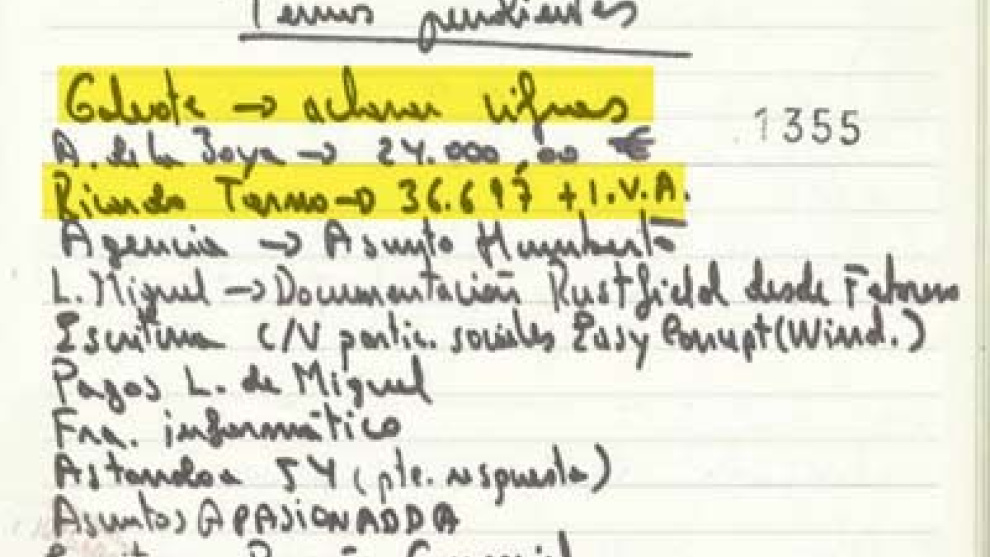 Temas pendientes
Galeote → aclarar cifras
1355
A. de la Joya → 24.000 00 €
Ricardo Terno → 36.697 + I.V.A.
Agencia → Asunto Humberto
L. Miguel → Documentación Rustfield desde Febrero
Escritura C/V partic. sociales Easy Concept (Wind.)
Pagos L. de Miguel
Fra. informático
Astondoa 54 (pte. respuesta)
Asuntos APASIONADDA